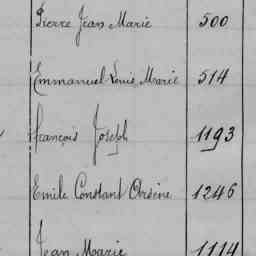 Pierre Jean Marie 500
Emmanuel Louis Marie 514
François Joseph 1193
Emile Constant Arsène 1246
Jean Marie 1114